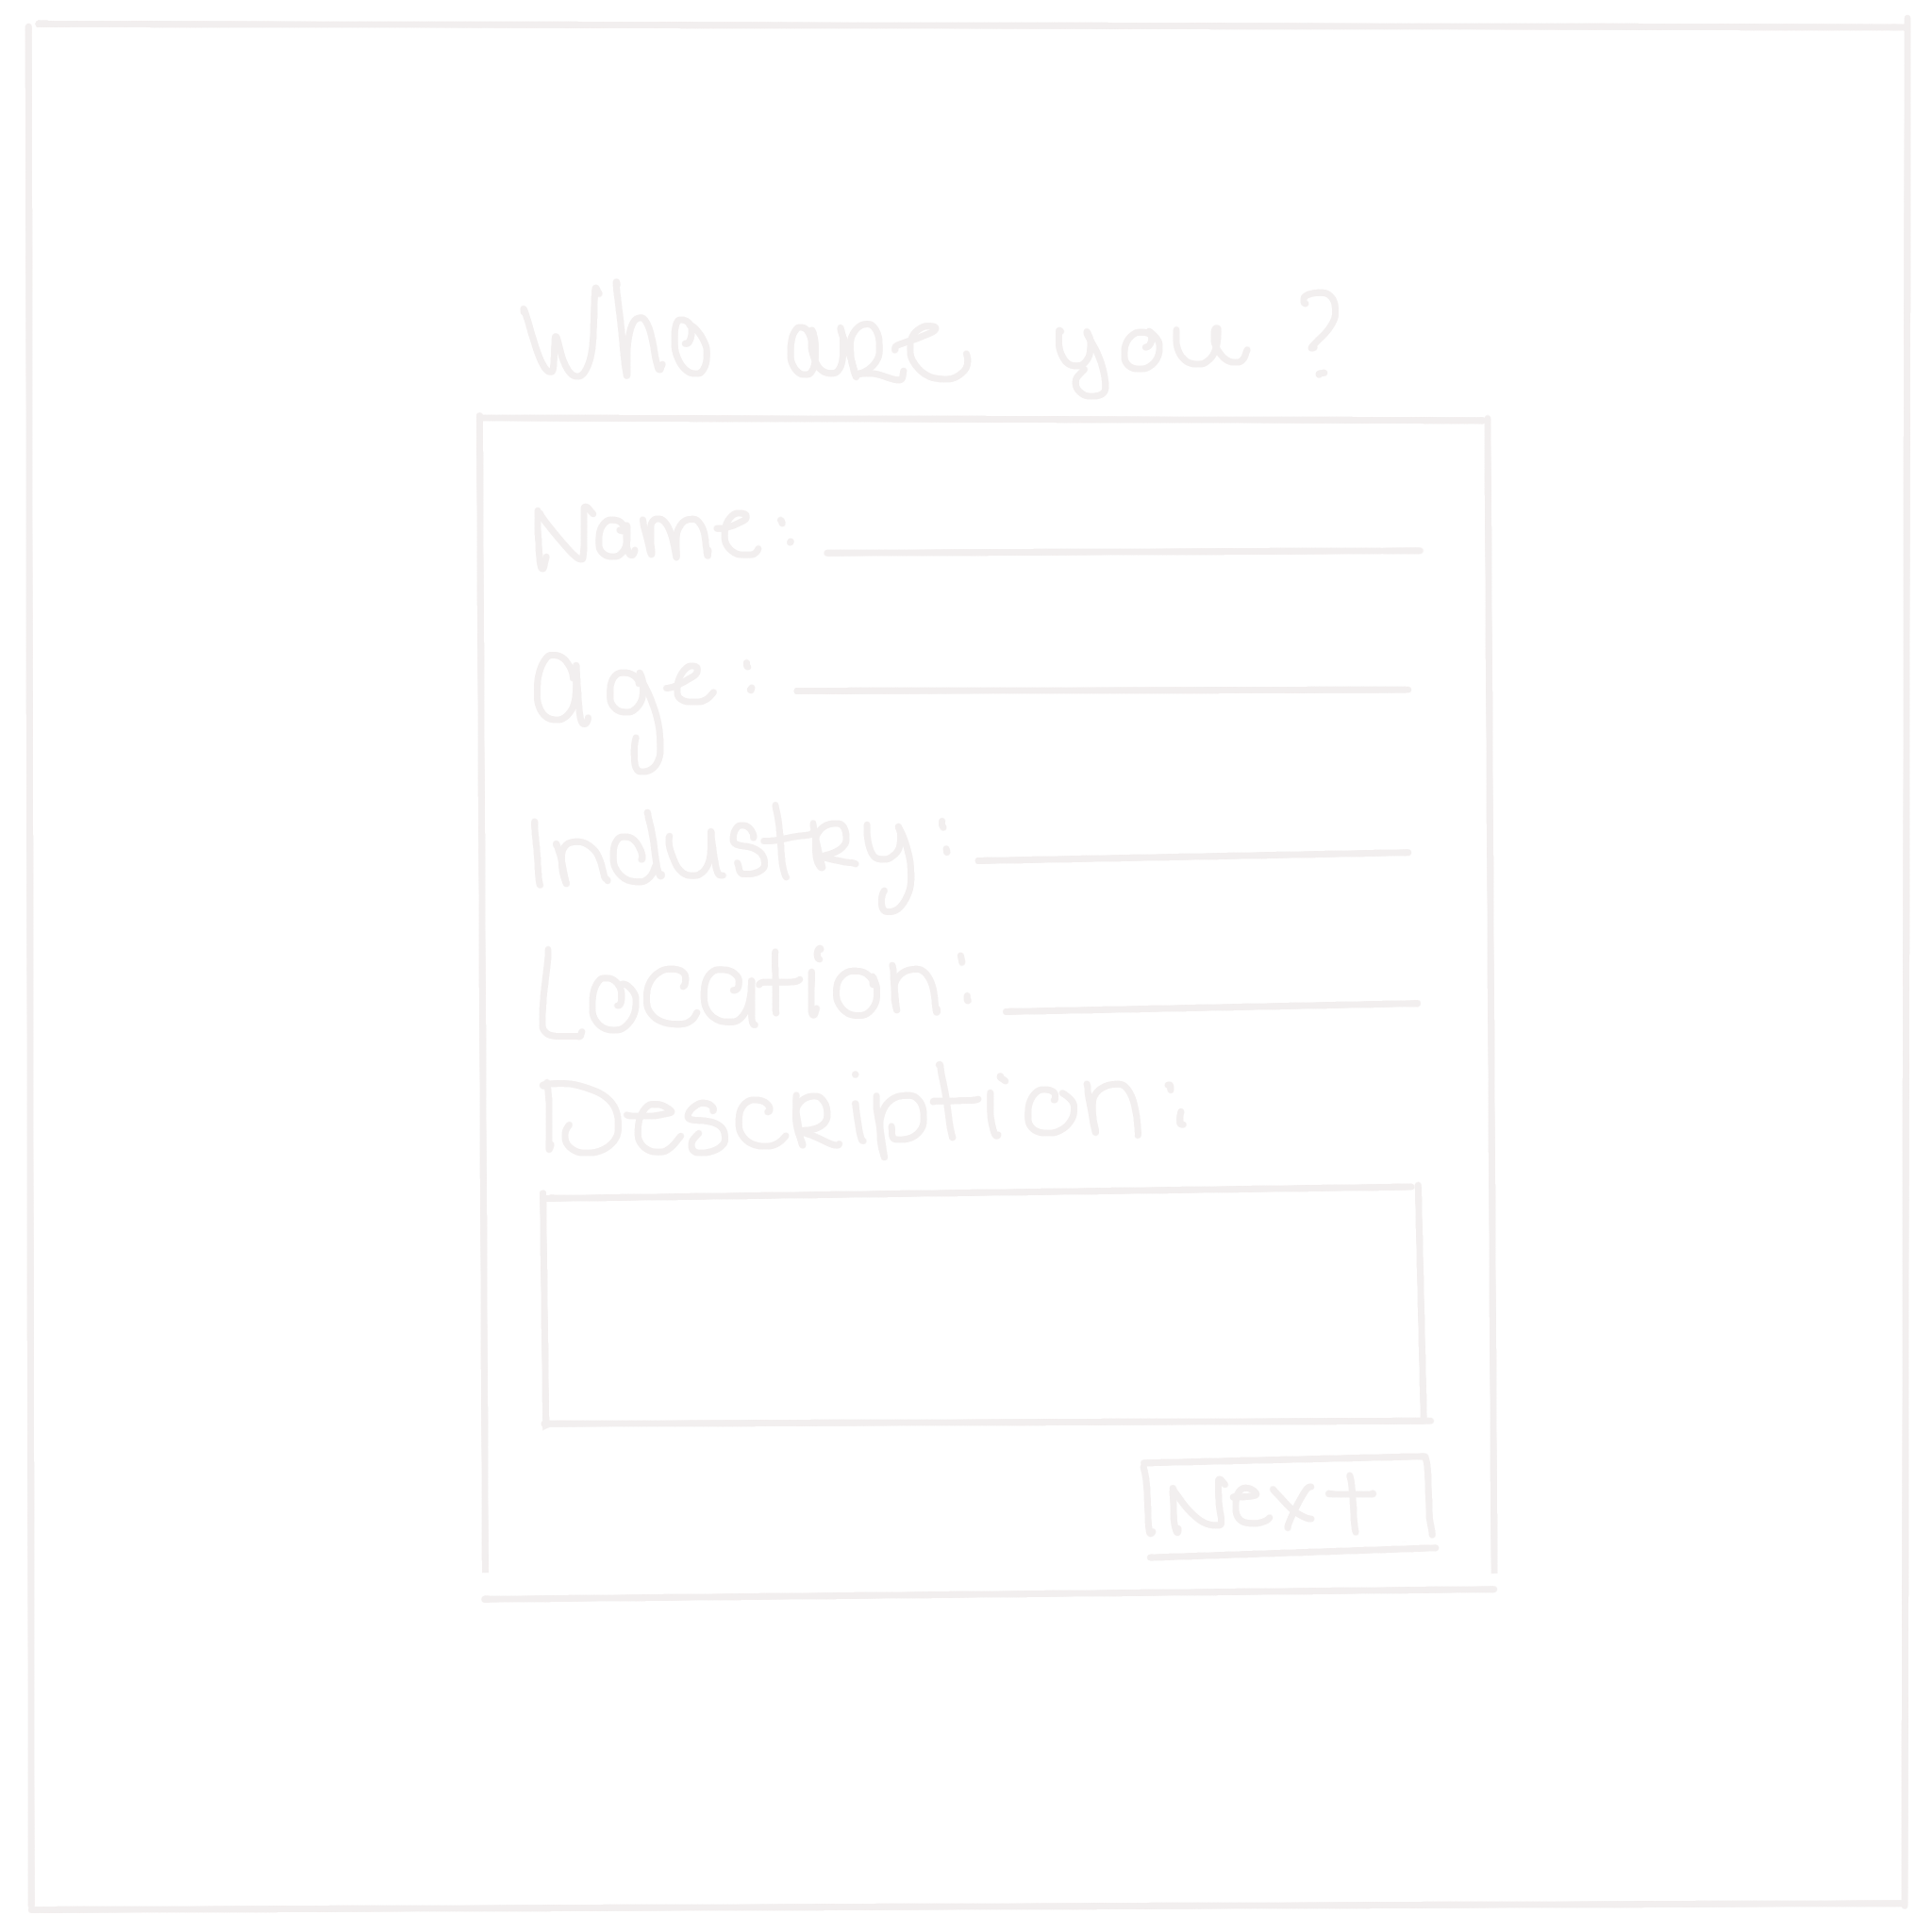 Who are you?
Name:
Age:
Industry:
Location:
Description:
Next